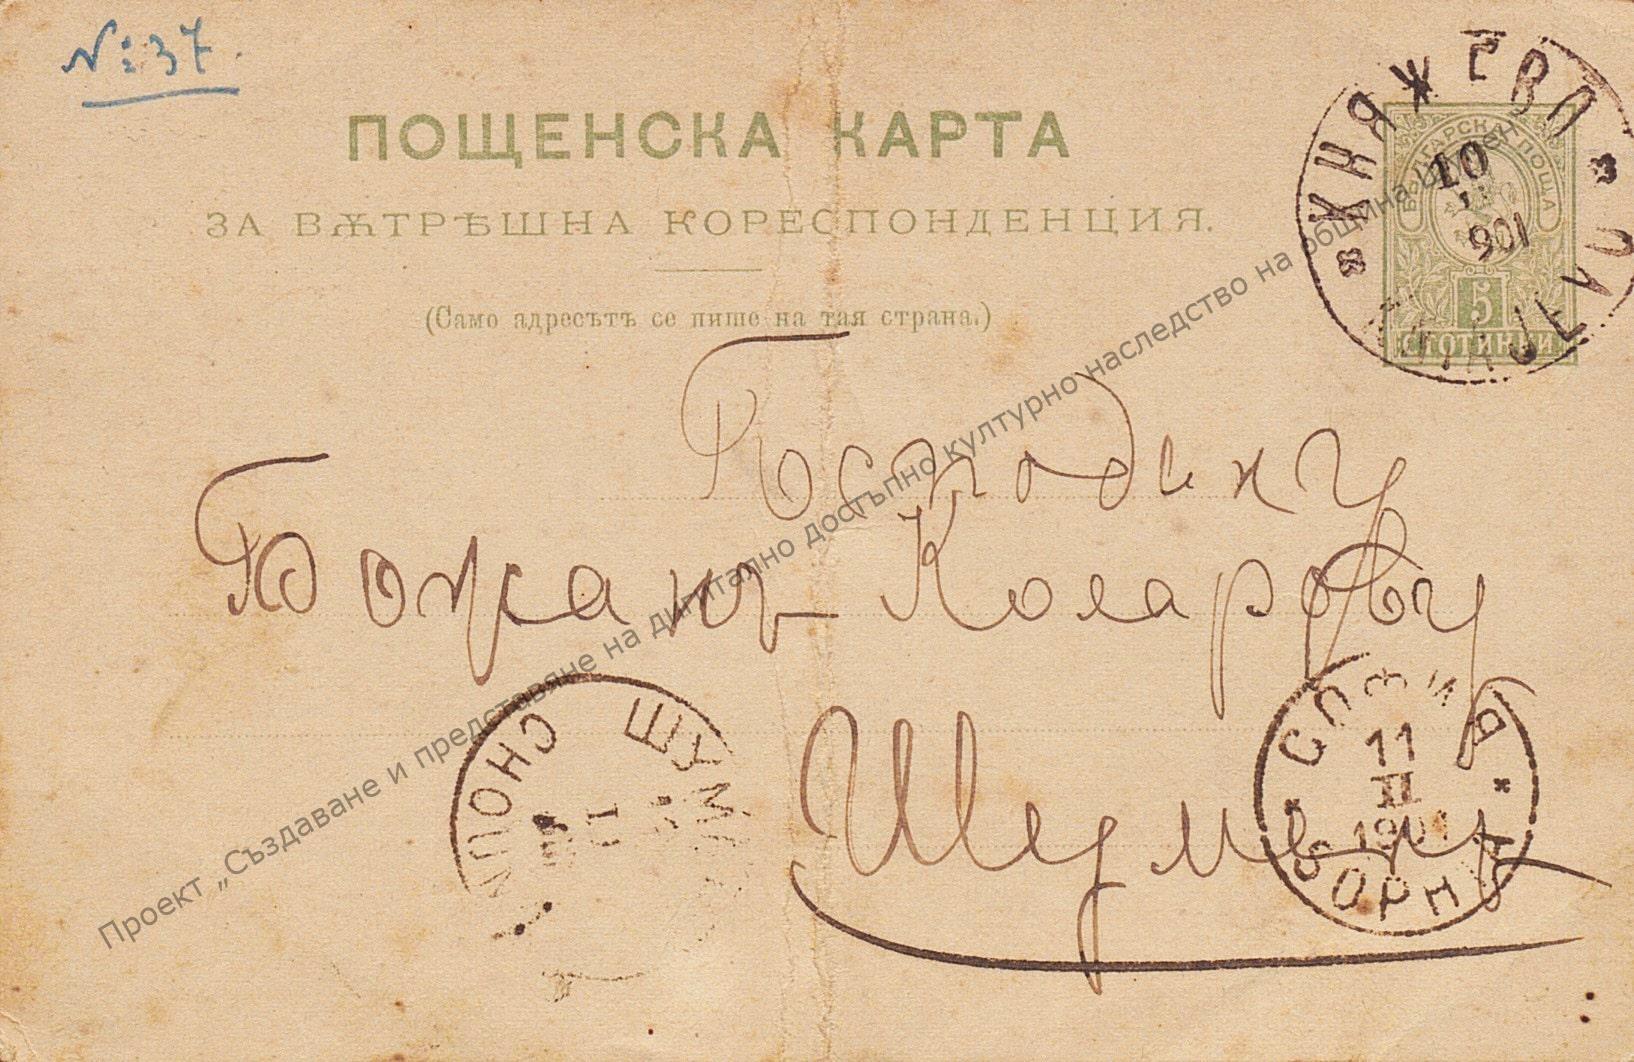 №: 37.
ПОЩЕНСКА КАРТА
ЗА ВѪТРѢШНА КОРЕСПОНДЕНЦИЯ.
(Само адресътъ се пише на тая страна.)
КНЯЖЕВО
10
901
KNIAJEVO
БЪЛГАРСКА ПОЩА
5
СТОТИНКИ
Господину
Божанъ Коларову
Шуменъ
СОФИЯ
11
II
1901
ШУМЕН
11
Проект „Създаване и представяне на дигитално достъпно културно наследство на община Шумен